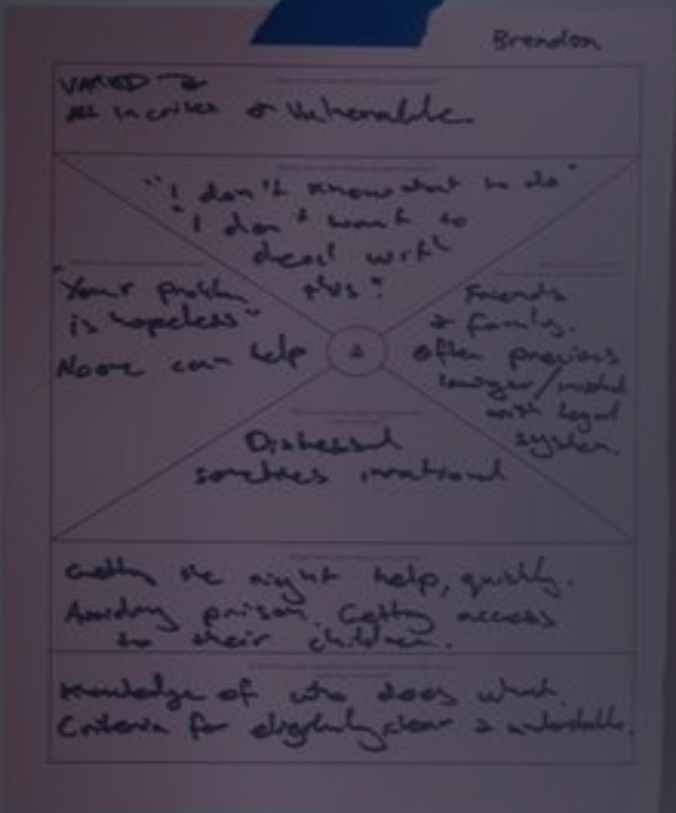 Brendon
VARIED →
All in crises & vulnerable
"I don't know what to do"
"I don't want to
deal with
this"
"Your problem
is hopeless"
No one can help
Friends
& family.
Often previous
lawyer/
with legal
system.
Distressed
sometimes irrational
Getting the right help, quickly.
Avoiding prison. Getting access
to their children.
Knowledge of who does what.
Criteria for eligibility clear &